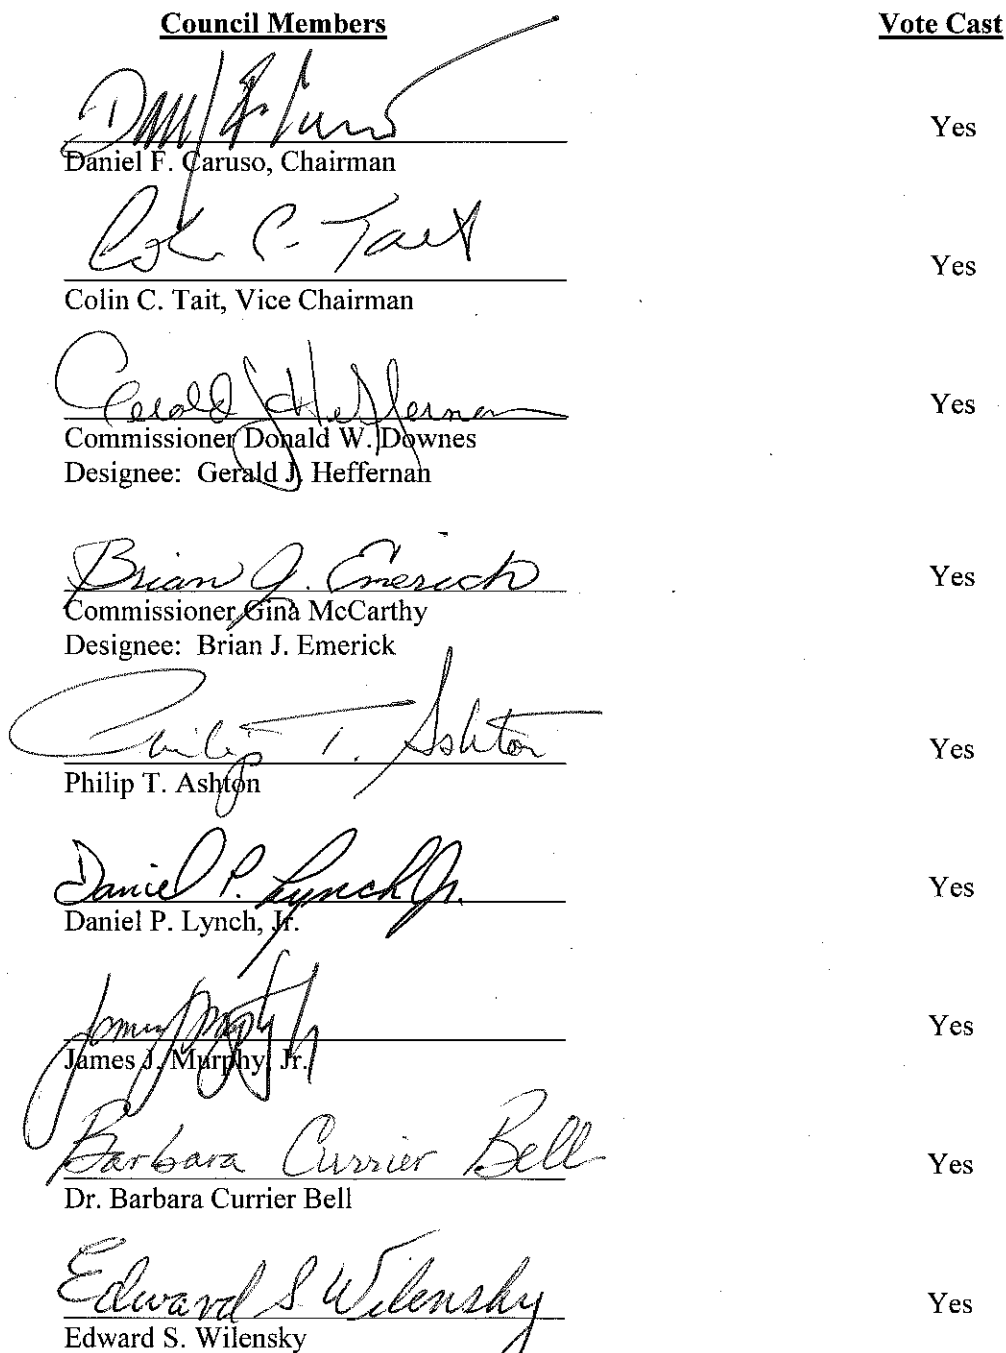 Council Members Vote Cast
Daniel F. Caruso, Chairman Yes
Colin C. Tait
Colin C. Tait, Vice Chairman Yes
Gerald J. Heffernan
Commissioner Donald W. Downes Yes
Designee: Gerald J. Heffernan
Brian J. Emerick
Commissioner Gina McCarthy Yes
Designee: Brian J. Emerick
Philip T. Ashton
Philip T. Ashton Yes
Daniel P. Lynch Jr.
Daniel P. Lynch, Jr. Yes
James J. Murphy, Jr. Yes
Barbara Currier Bell
Dr. Barbara Currier Bell Yes
Edward S. Wilensky
Edward S. Wilensky Yes